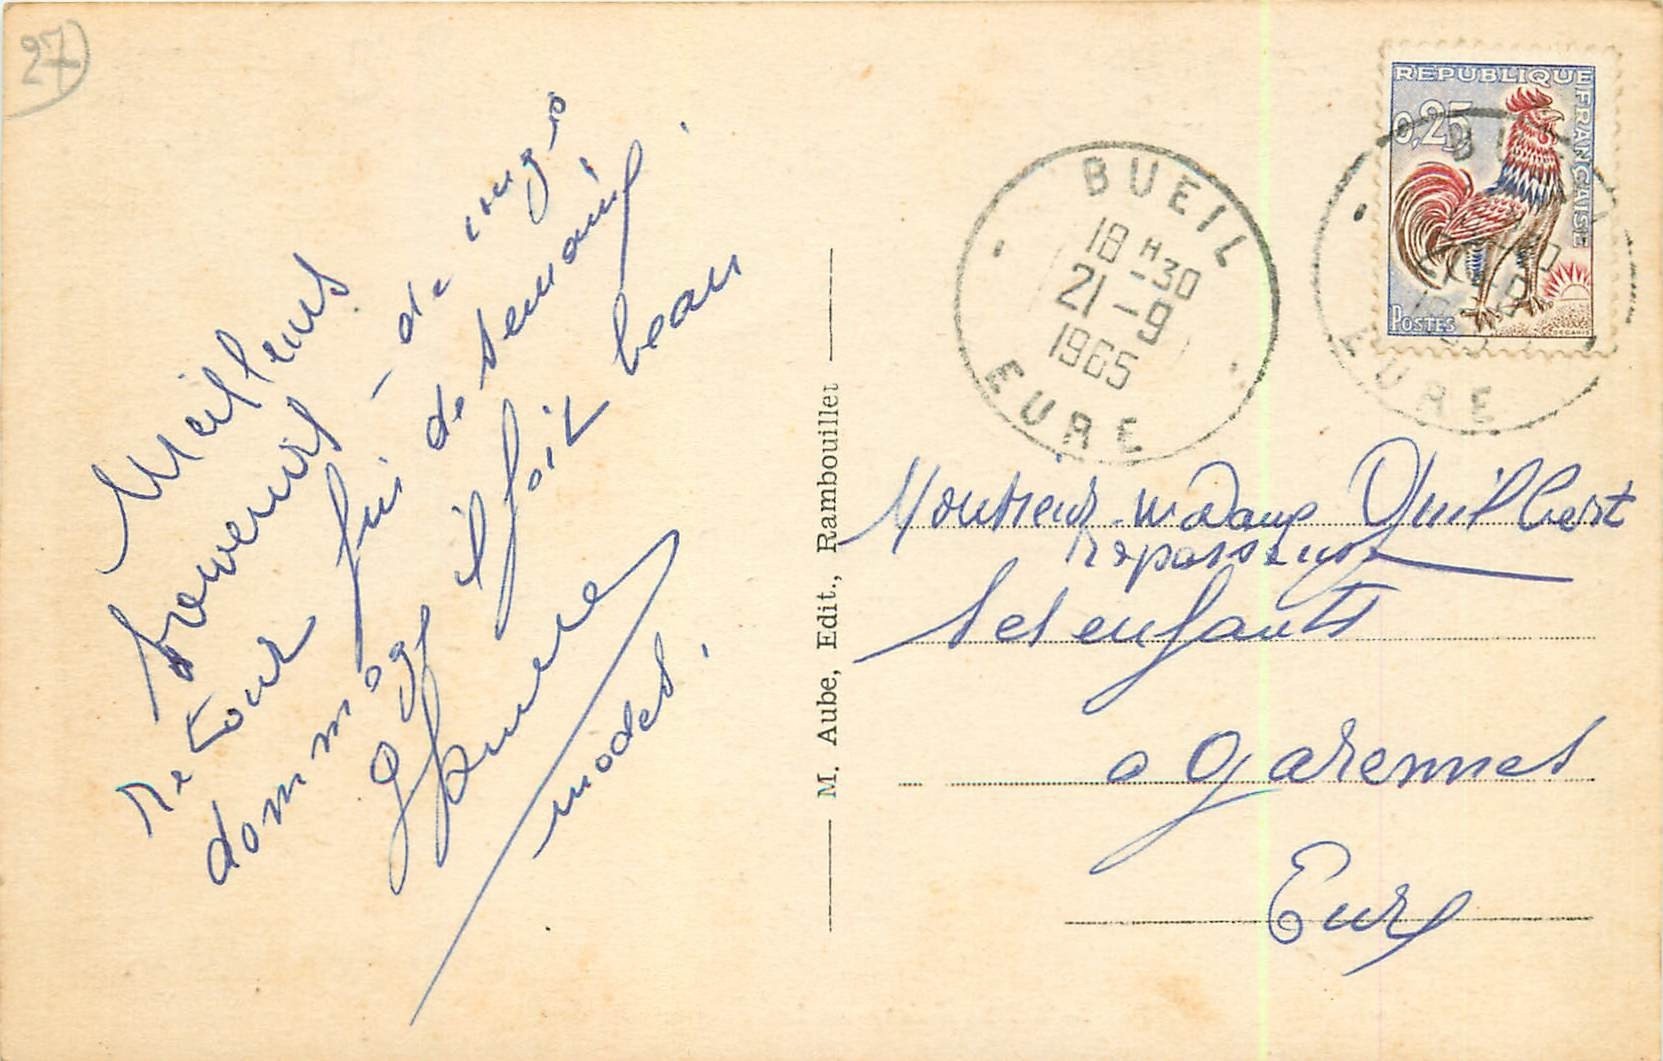 27
Meilleurs
souvenirs - de congé
retour fin de semaine.
dommage il fait beau
modes.
M. Aube, Edit., Rambouillet
REPUBLIQUE FRANÇAISE
0,25
POSTES
BUEIL
18 H 30
21 - 9
1965
EURE
BUEIL
EURE
Monsieur - madame Quilbert
repasseuse
ses enfants
a Garennes
Eure